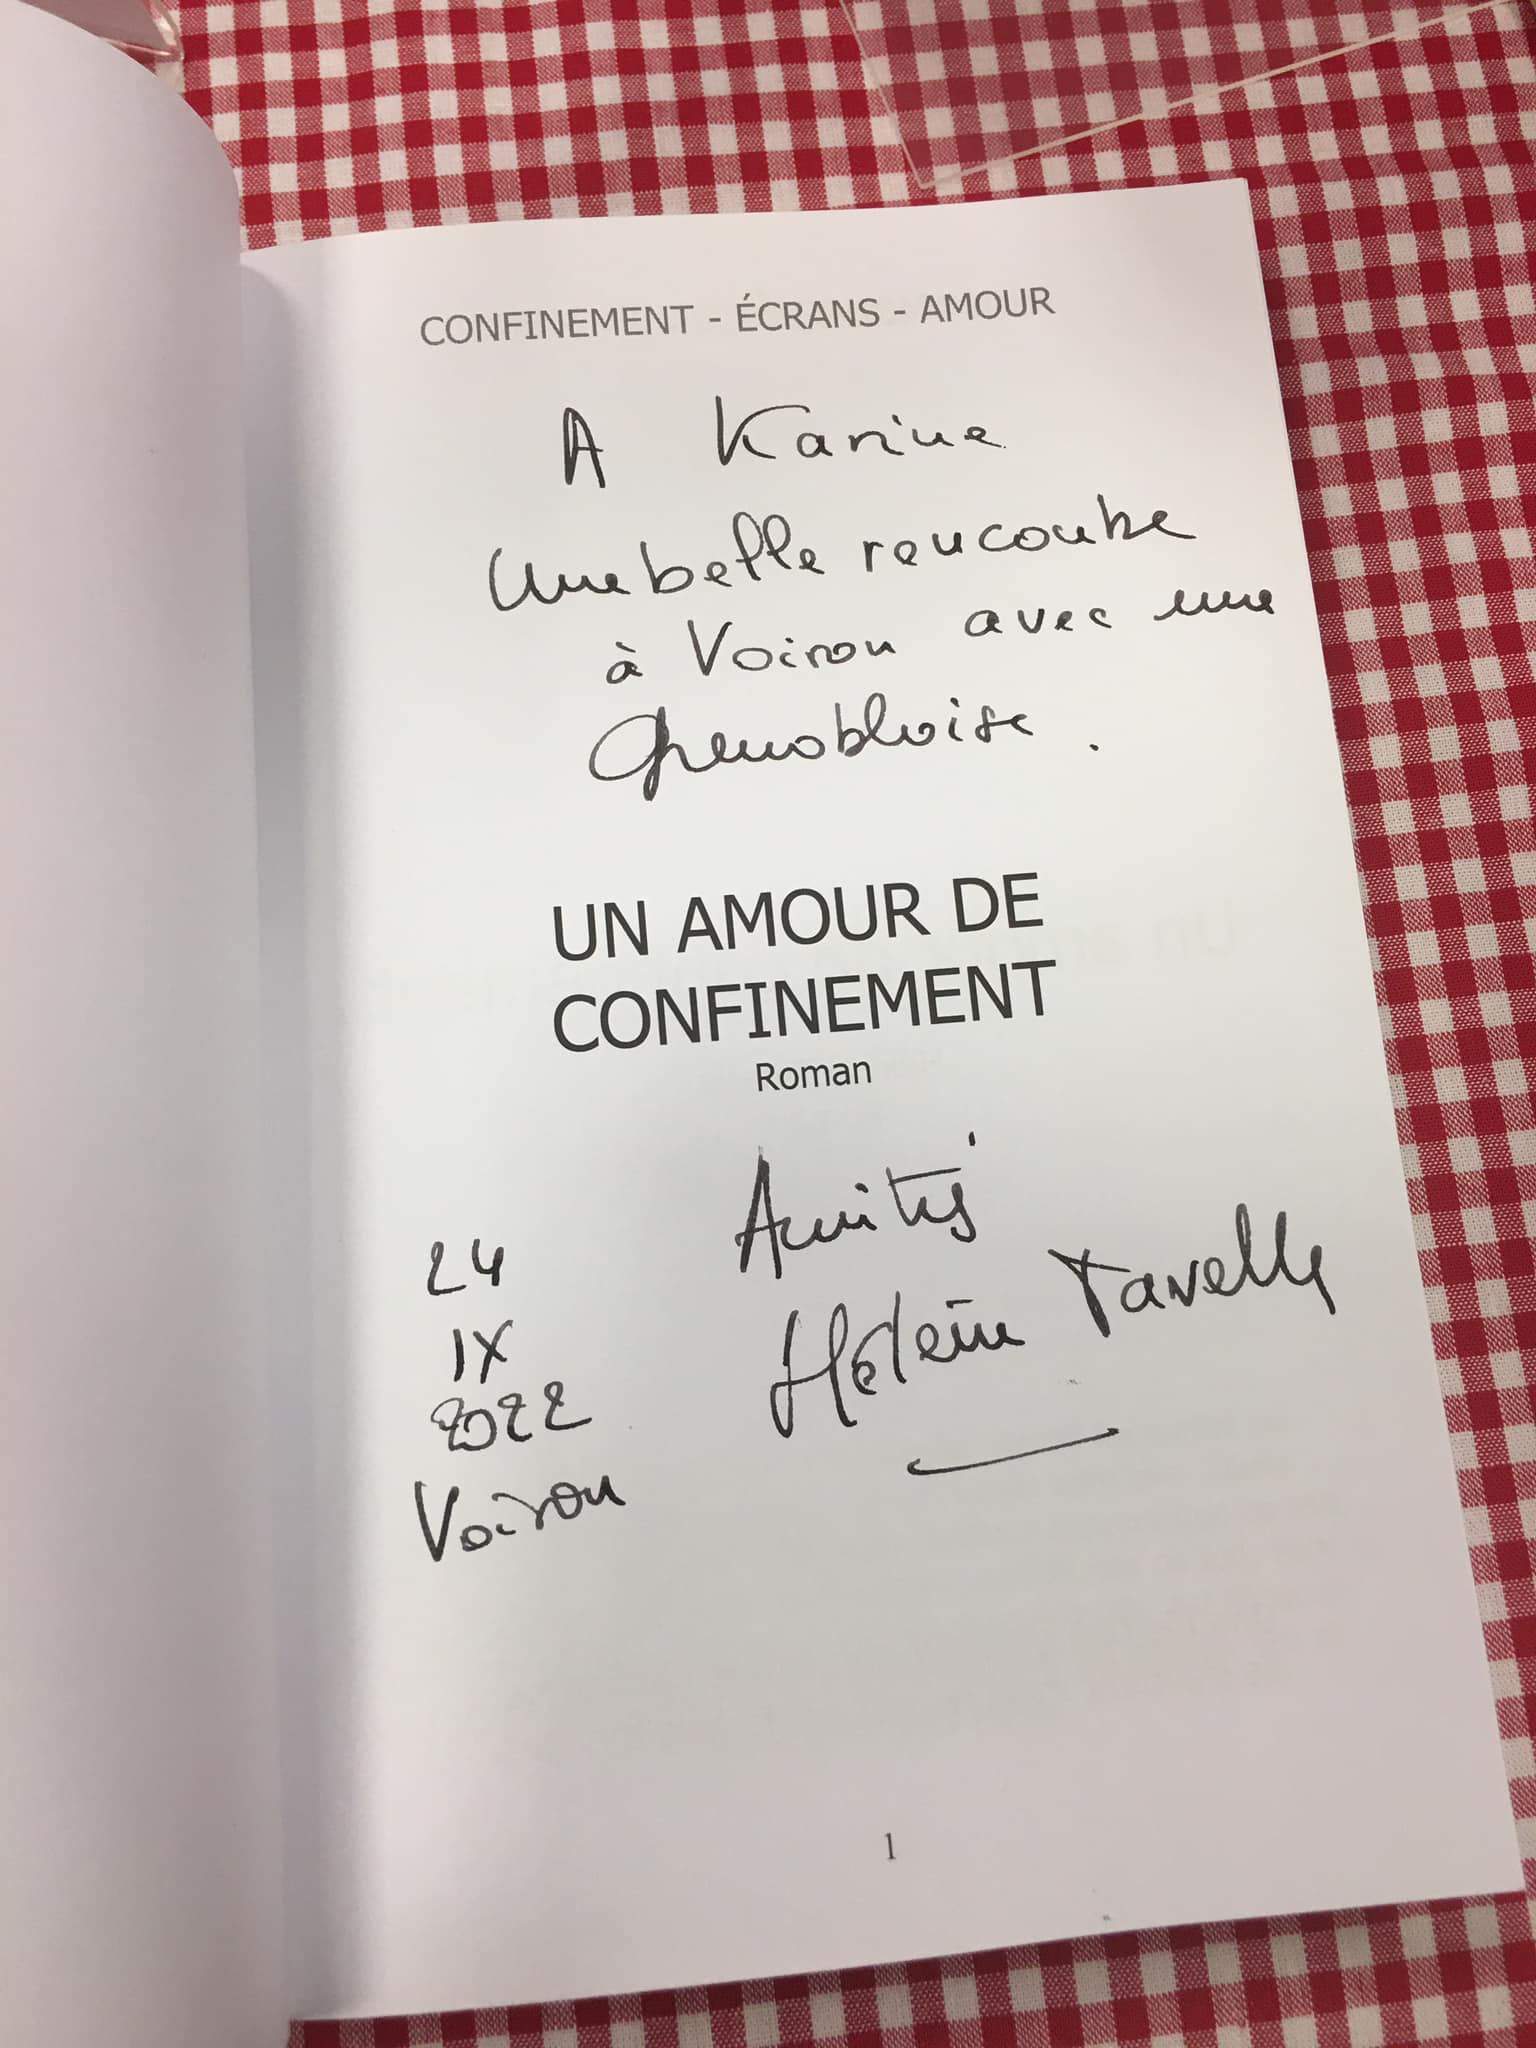 CONFINEMENT - ÉCRANS - AMOUR
A Karine
Une belle rencontre
à Voiron avec une
Grenobloise.
UN AMOUR DE
CONFINEMENT
Roman
Amitiés
Tavelle
24
IX
2022
Voiron
1